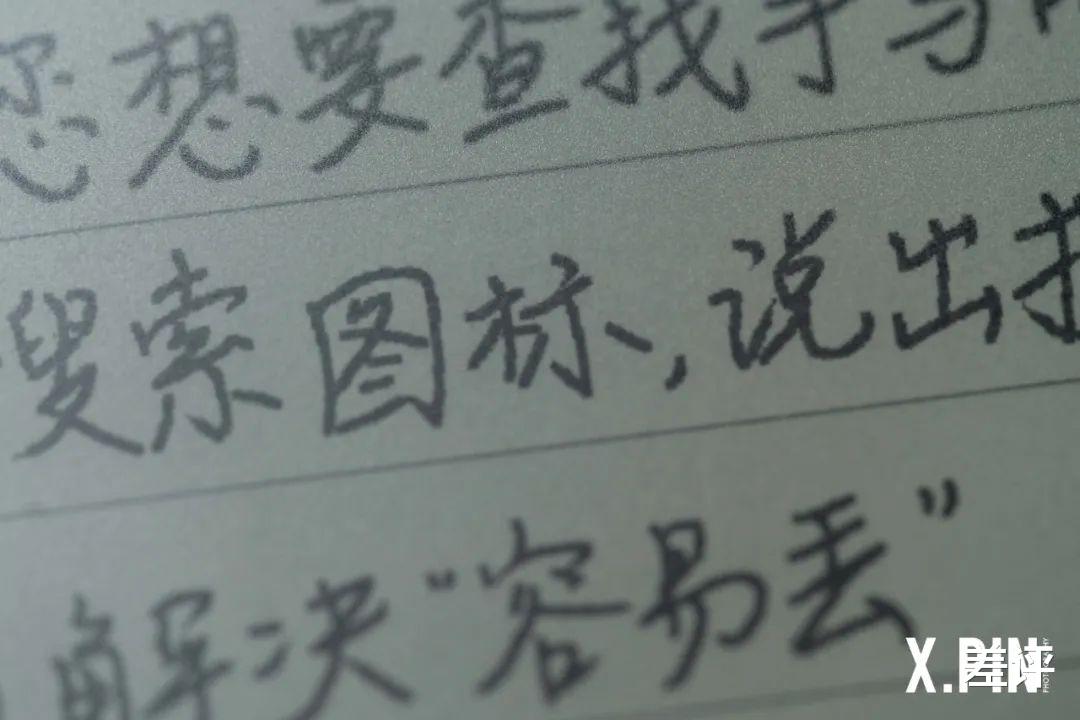 您想要查找手写
搜索图标,说出
解决“容易丢”
X.PIN
差评